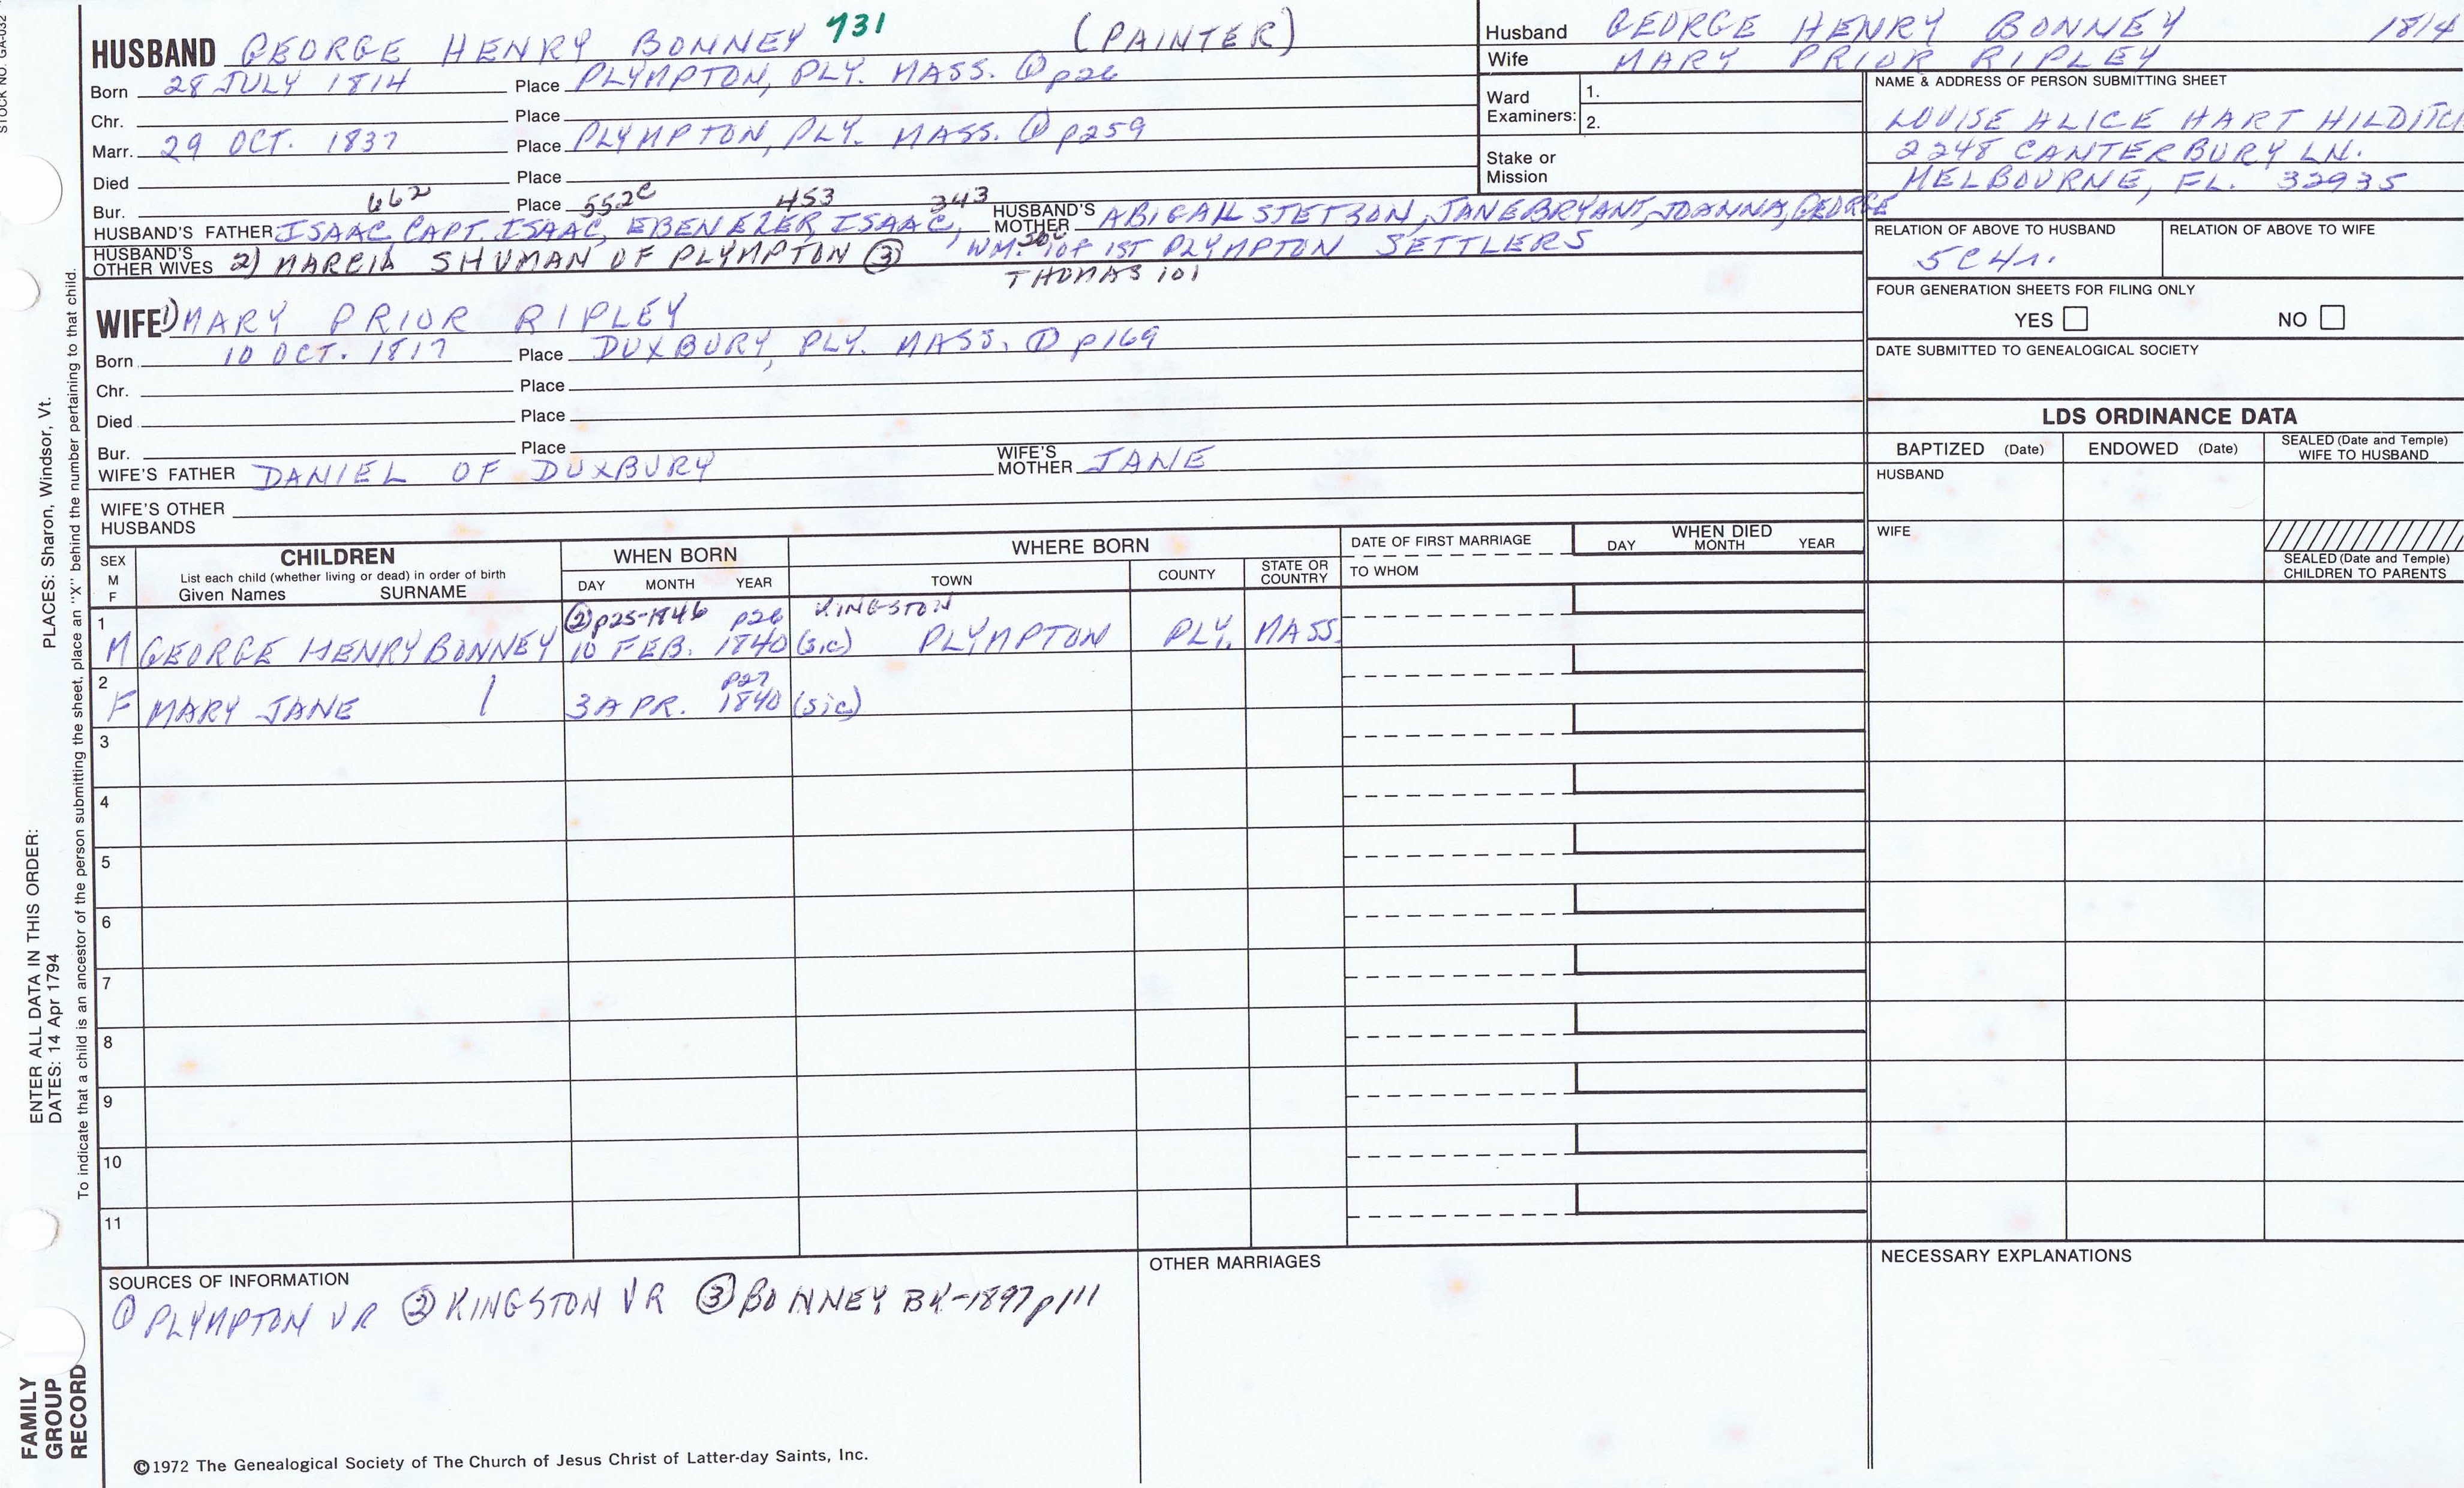 STOCK NO. GA-032
HUSBAND GEORGE HENRY BONNEY 731 (PAINTER)
Born 28 JULY 1814 Place PLYMPTON, PLY. MASS. ① p26
Chr. Place
Marr. 29 OCT. 1837 Place PLYMPTON, PLY. MASS. ① p259
Died Place
662 552c 453 343
Bur. Place
HUSBAND'S FATHER ISAAC, CAPT. ISAAC, EBENEZER, ISAAC, HUSBAND'S MOTHER ABIGAIL STETSON, JANE BRYANT, JOANNA, GEORGE
HUSBAND'S OTHER WIVES 2) MARCIA SHUMAN OF PLYMPTON ③ WM. 1 OF 1ST PLYMPTON SETTLERS
THOMAS 101
WIFE 1) MARY PRIOR RIPLEY
Born 10 OCT. 1817 Place DUXBURY, PLY. MASS. ① p169
Chr. Place
Died Place
Bur. Place
WIFE'S FATHER DANIEL OF DUXBURY WIFE'S MOTHER JANE
WIFE'S OTHER HUSBANDS
Husband GEORGE HENRY BONNEY 1814
Wife MARY PRIOR RIPLEY
Ward Examiners: 1.
2.
Stake or Mission
NAME & ADDRESS OF PERSON SUBMITTING SHEET
LOUISE ALICE HART HILDITCH
2248 CANTERBURY LN.
MELBOURNE, FL. 32935
RELATION OF ABOVE TO HUSBAND RELATION OF ABOVE TO WIFE
5C4r.
FOUR GENERATION SHEETS FOR FILING ONLY
YES NO
DATE SUBMITTED TO GENEALOGICAL SOCIETY
LDS ORDINANCE DATA
BAPTIZED (Date) ENDOWED (Date) SEALED (Date and Temple) WIFE TO HUSBAND
HUSBAND
WIFE
SEALED (Date and Temple) CHILDREN TO PARENTS
SEX M F CHILDREN WHEN BORN WHERE BORN DATE OF FIRST MARRIAGE WHEN DIED
List each child (whether living or dead) in order of birth
Given Names SURNAME DAY MONTH YEAR TOWN COUNTY STATE OR COUNTRY TO WHOM DAY MONTH YEAR
② p25-1846 p26 KINGSTON
1 M GEORGE HENRY BONNEY 10 FEB. 1840 (sic) PLYMPTON PLY. MASS.
p27
2 F MARY JANE 3 APR. 1840 (sic)
3
4
5
6
7
8
9
10
11
SOURCES OF INFORMATION
① PLYMPTON VR ② KINGSTON VR ③ BONNEY BK-1897 p111
OTHER MARRIAGES
NECESSARY EXPLANATIONS
©1972 The Genealogical Society of The Church of Jesus Christ of Latter-day Saints, Inc.
FAMILY GROUP RECORD
ENTER ALL DATA IN THIS ORDER:
DATES: 14 Apr 1794
PLACES: Sharon, Windsor, Vt.
To indicate that a child is an ancestor of the person submitting the sheet, place an "X" behind the number pertaining to that child.